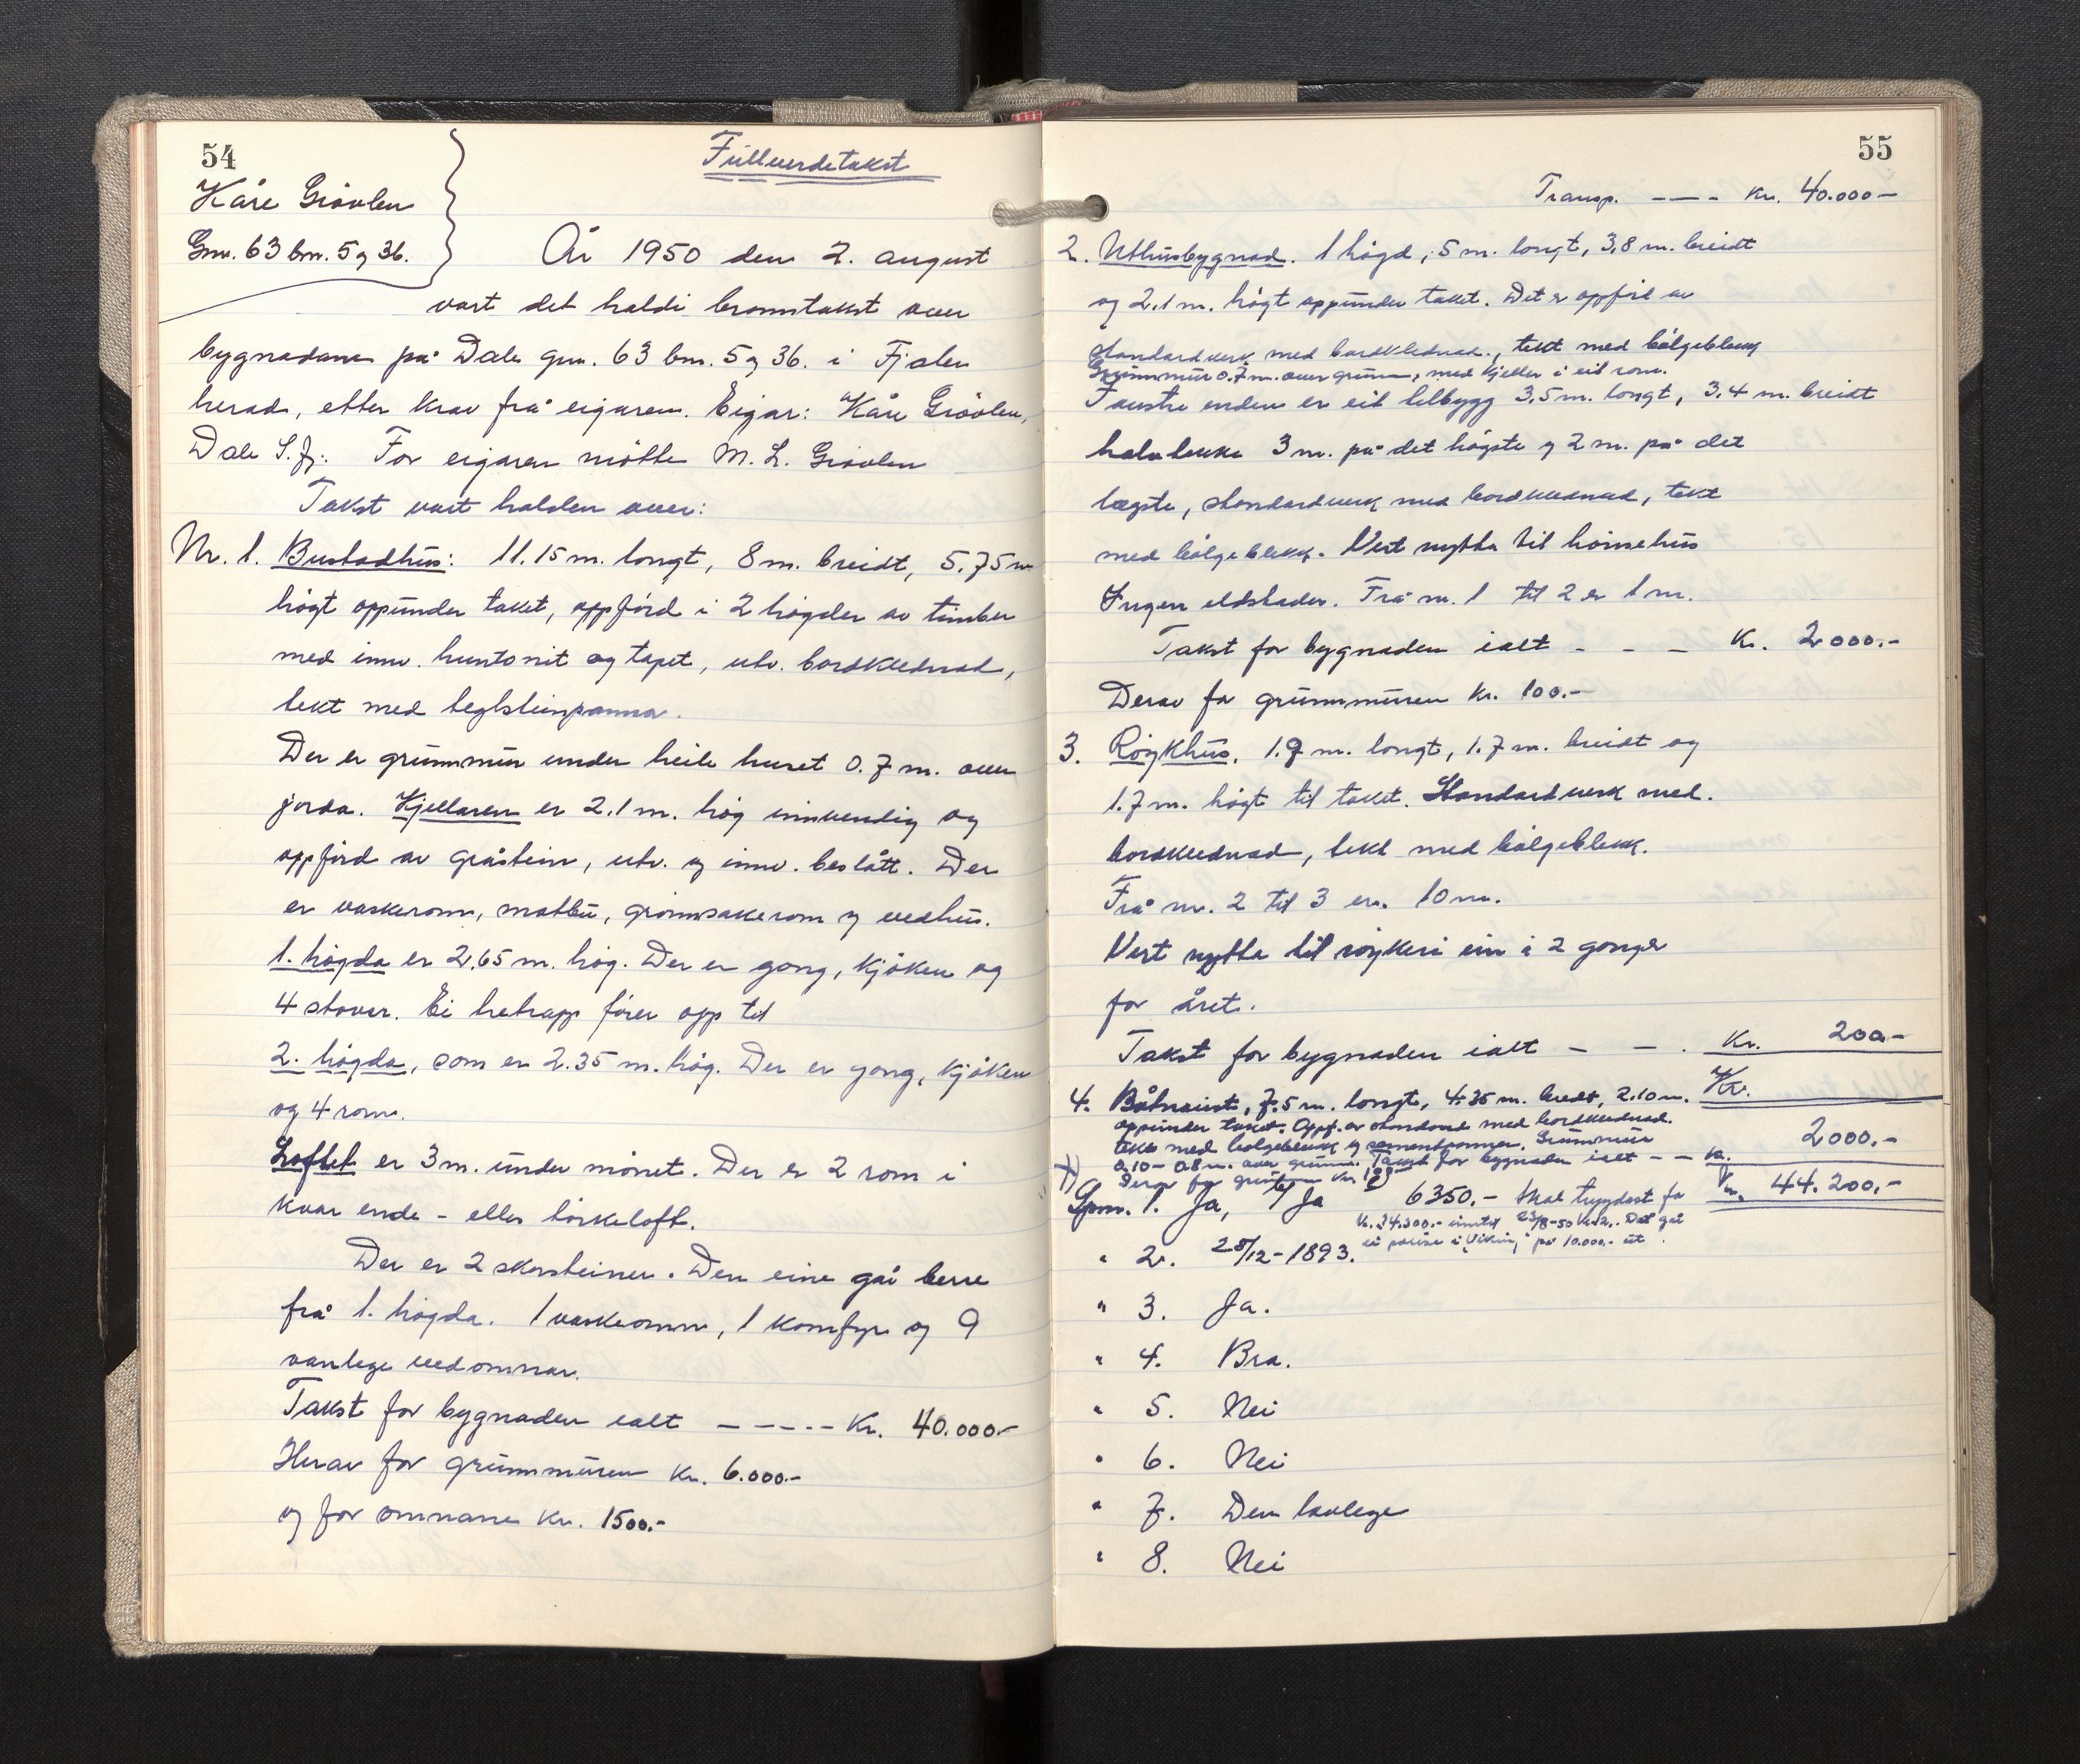 54
Fullverdetakst
Kåre Grövlen
Gnr. 63 bnr. 5 og 36.
År 1950 den 2. august
vart det haldi branntakst over
bygnadane på Dale gnr. 63 bnr. 5 og 36. i Fjaler
herad, etter krav frå eigaren. Eigar: Kåre Grövlen,
Dale S.Fj. For eigaren mötte M. L. Grövlen
Takst vart halden over:
Nr. 1. Bustadhus: 11.15 m. langt, 8 m. breidt, 5.75 m
högt oppunder taket, oppförd i 2 högder av timber
med innv. huntonit og tapet, utv. bordklednad,
tekt med teglsteinpanner.
Der er grunnmur under heile huset 0.7 m. over
jorda. Kjellaren er 2.1 m. hög innvendig og
oppförd av gråstein, utv. og innv. beslått. Der
er vaskerom, matbu, grönsakerom og vedhus.
1. högda er 2,65 m. hög. Der er gang, kjöken og
4 stover. Ei tretrapp förer opp til
2. högda, som er 2.35 m. hög. Der er gang, kjöken
og 4 rom.
Loftet er 3 m. under mönet. Der er 2 rom i
kvar ende - elles törkeloft.
Der er 2 skorsteiner. Den eine går berre
frå 1. högda. 1 vaskeomn, 1 komfyr og 9
vanlege vedomnar.
Takst for bygnaden ialt ----- Kr. 40.000.-
Herav for grunnmuren kr. 6.000.-
og for omnane kr. 1500.-
55
Transp. ---- kr. 40.000-
2. Uthusbygnad. 1 högd, 5 m. langt, 3,8 m. breidt
og 2.1 m. högt oppunder taket. Det er oppförd av
standardverk med bordklednad., tekt med bölgeblekk
Grunnmur 0.7 m. over grunn, med kjeller i eit rom.
I austre enden er eit tilbygg 3.5 m. langt, 3.4 m. breidt
halvtekke 3 m. på det högste og 2 m. på det
lægste, standardverk med bordklednad, tekt
med bölgeblekk. Vert nytta til hönsehus
Ingen eldstader. Frå nr. 1 til 2 er 1 m.
Takst for bygnaden ialt - - - Kr. 2000.-
Derav for grunnmuren kr. 100.-
3. Röykhus. 1.9 m. langt, 1.7 m. breidt og
1.7 m. högt til taket. Standardverk med.
bordklednad, tekt med bölgeblekk.
Frå nr. 2 til 3 er. 10 m.
Vert nytta til röykeri ein à 2 gonger
for året.
Takst for bygnaden ialt - - . Kr. 200.-
Kr.
4. Båtnaust, 7.5 m. langt, 4.35 m. bredt, 2.10 m.
oppunder taket. Oppf. av standard med bordklednad.
tekt med bölgeblekk og sementpanner. Grunnmur
0.10 - 0.8 m. over grunn. Takst for bygnaden ialt - - kr. 2000.-
Derav for grunnm kr. 100
Kr. 44.200,-
Spm. 1. Ja, Ja 6350.- Skal trygdast for
kr. 34.200.- inntil 23/8-50 Det går
ei polise i "Viking" på 10.000.- ut.
" 2. 28/12-1893.
" 3. Ja.
" 4. Bra.
" 5. Nei
" 6. Nei
" 7. Den lovlege
" 8. Nei